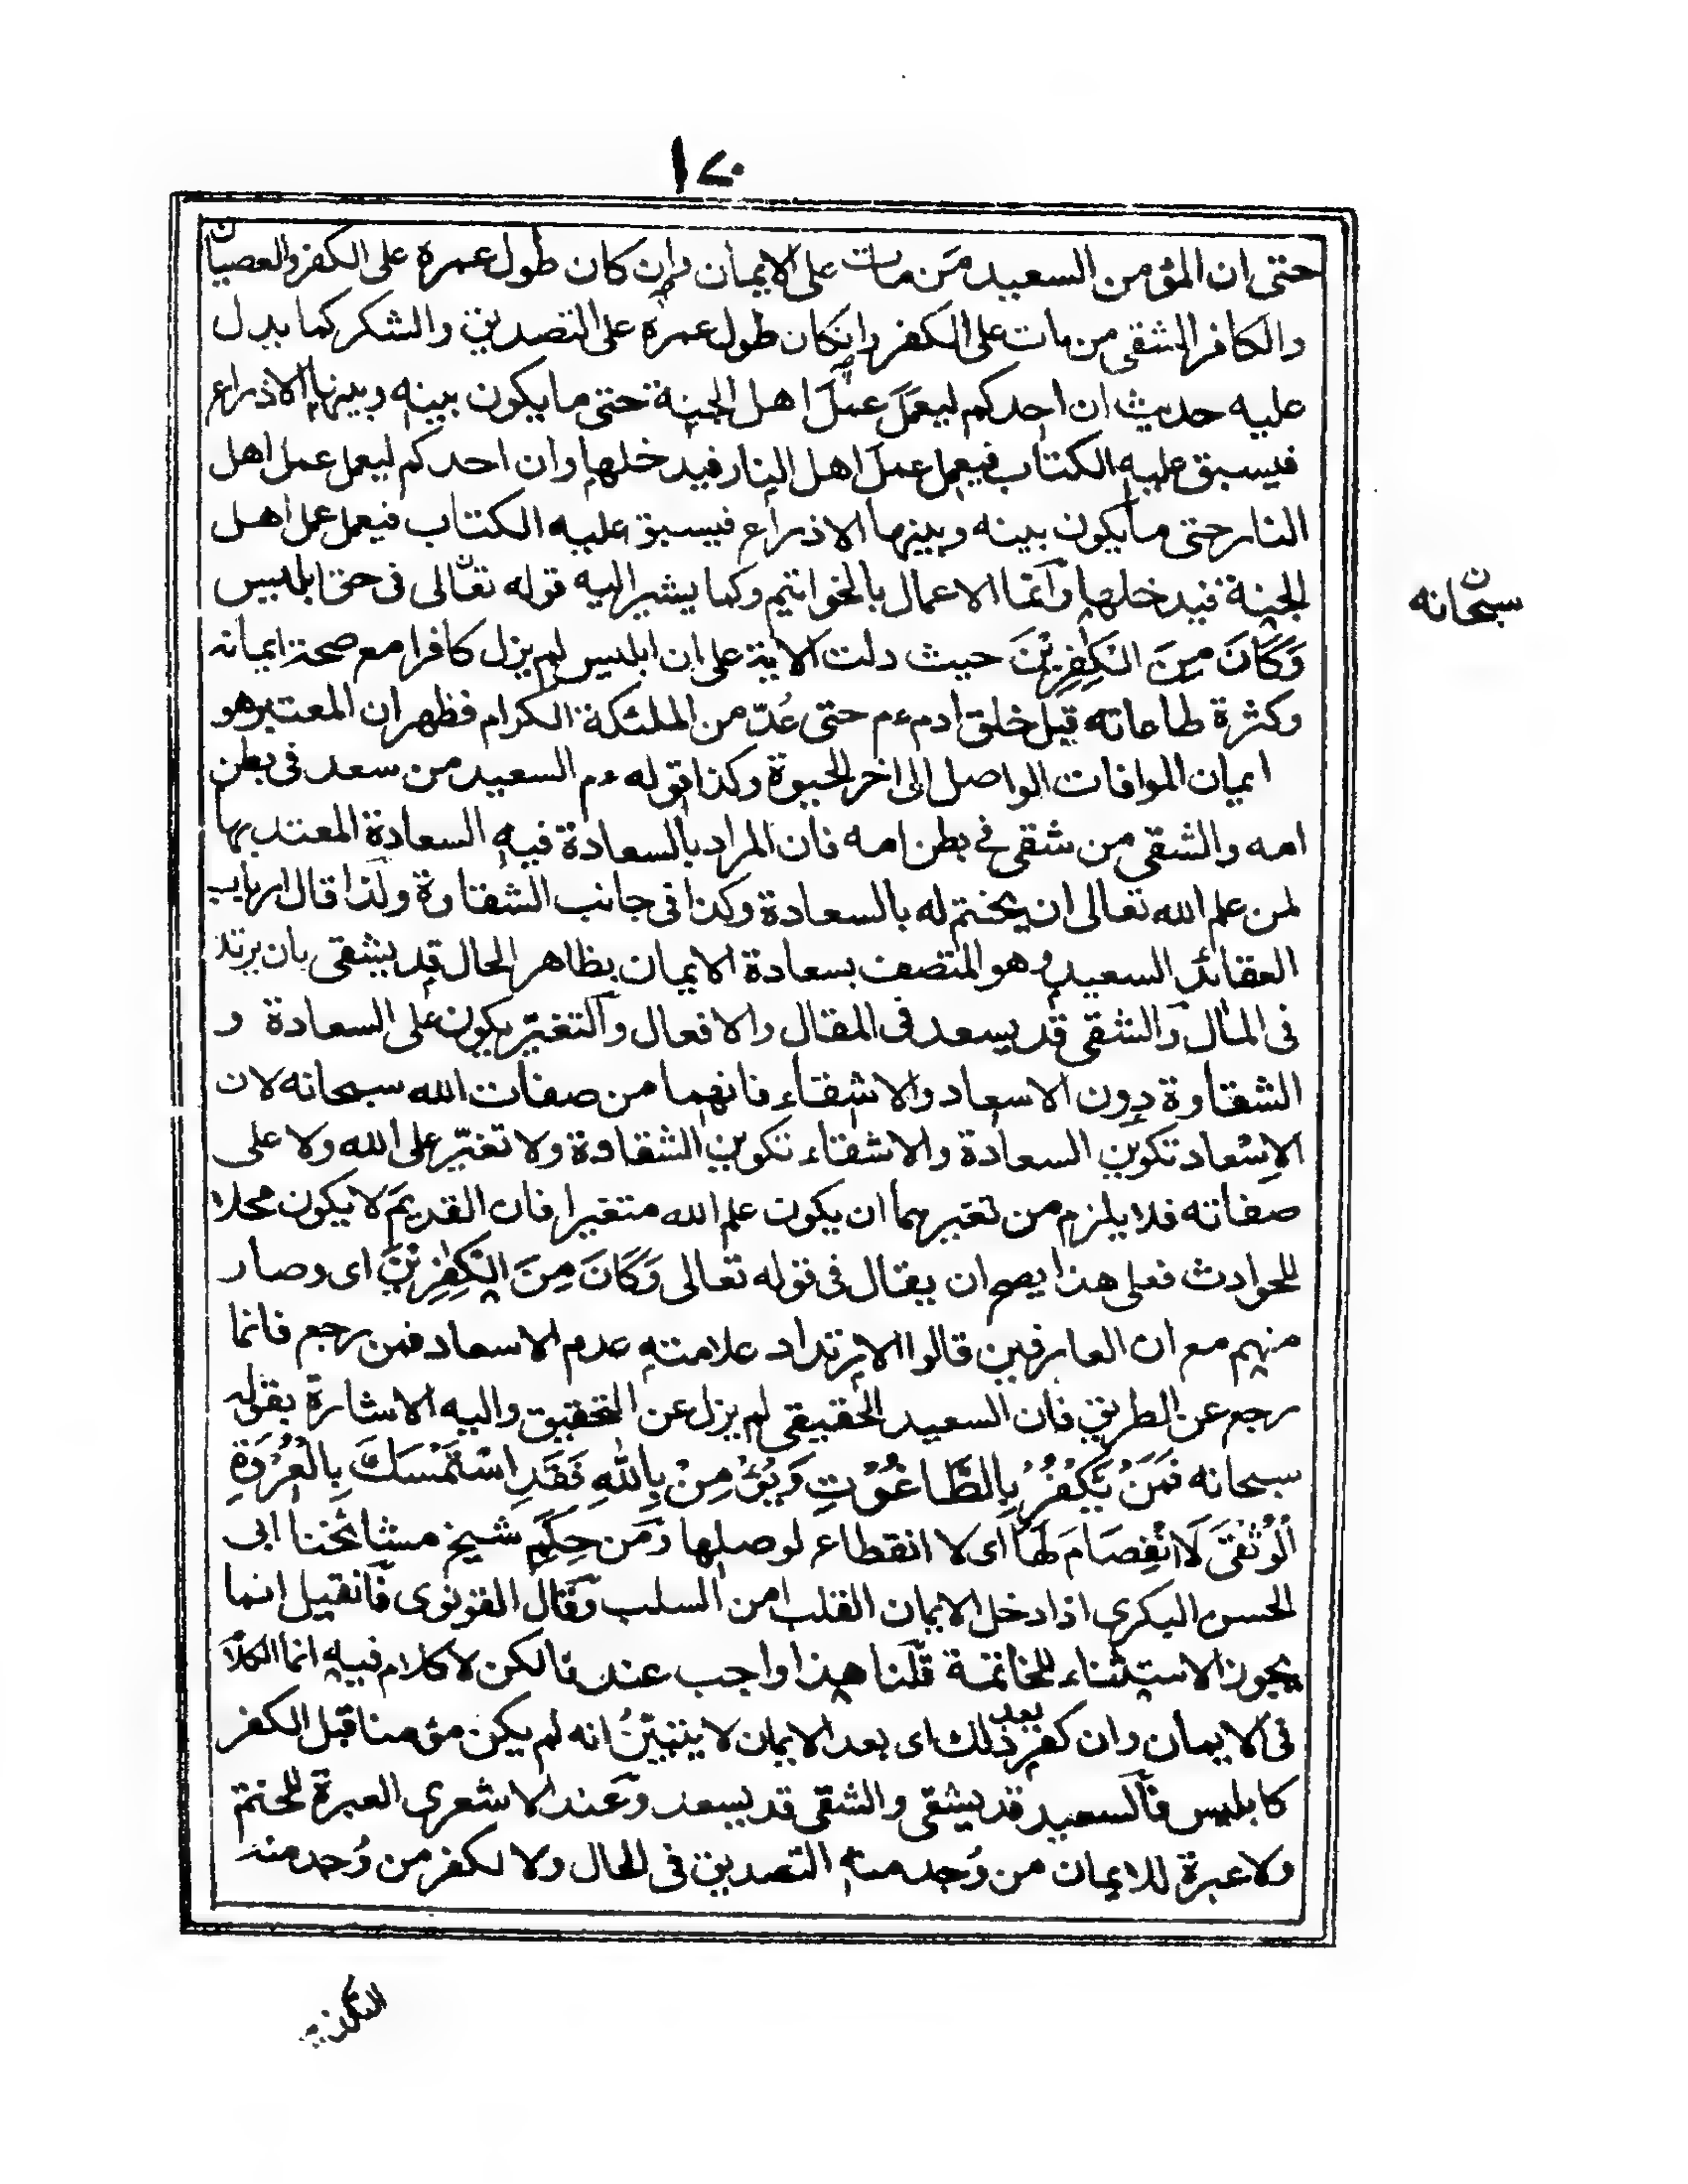 ١٧٠
حتى ان المؤمن السعيد من مات على الايمان وان كان طول عمره على الكفر والعصيان
والكافر الشقى من مات على الكفر وان كان طول عمره على التصديق والشكر كما يدل
عليه حديث ان احدكم ليعمل عمل اهل الجنة حتى ما يكون بينه وبينها الا ذراع
فيسبق عليه الكتاب فيعمل عمل اهل النار فيدخلها وان احدكم ليعمل عمل اهل
النار حتى ما يكون بينه وبينها الا ذراع فيسبق عليه الكتاب فيعمل عمل اهل
الجنة فيدخلها وانما الاعمال بالخواتيم وكما يشير اليه قوله تعالى فى حق ابليس
سبحانه ن
وَكَانَ مِنَ الْكٰفِرِيْنَ حيث دلت الاية على ان ابليس لم يزل كافرا مع صحة ايمانه
وكثرة طاعاته قبل خلق ادم ءم حتى عُدّ من الملئكة الكرام فظهر ان المعتبر هو
ايمان الموافات الواصل الى اخر الحيوة وكذا قوله ءم السعيد من سعد فى بطن
امه والشقى من شقى فى بطن امه فان المراد بالسعادة فيه السعادة المعتد بها
لمن علم الله تعالى ان يختم له بالسعادة وكذا فى جانب الشقاوة ولذا قال ارباب
العقائد السعيد وهو المتصف بسعادة الايمان بظاهر الحال قد يشقى بان يرتد
فى المال والشقى قد يسعد فى المقال والافعال والتغير يكون على السعادة و
الشقاوة دون الاسعاد والاشقاء فانهما من صفات الله سبحانه لان
الاِسْعاد تكوين السعادة والاشقاء تكوين الشقاوة ولا تغيّر على الله ولا على
صفاته فلا يلزم من تغيرهما ان يكون علم الله متغيرا فان القديم لا يكون محلا
للحوادث فعلى هذا يصح ان يقال فى قوله تعالى وَكَانَ مِنَ الْكٰفِرِيْنَ اى وصار
منهم مع ان العارفين قالوا الارتداد علامته عدم الاسعاد فمن رجع فانما
رجع عن الطريق فان السعيد الحقيقى لم يزل عن التحقيق واليه الاشارة بقوله
سبحانه فَمَنْ يَّكْفُرْ بِالطَّاغُوْتِ وَيُؤْمِنْ بِاللهِ فَقَدِ اسْتَمْسَكَ بِالْعُرْوَةِ
الْوُثْقٰى لَا انْفِصَامَ لَهَا اى لا انقطاع لوصلها ومن حِكَم شيخ مشائخنا ابى
الحسن البكرى اذا دخل الايمان القلب امن السلب وقال القونوى فان قيل انما
يجوز الاستثناء للخاتمة قلنا هذا واجب عندنا لكن لا كلام فيه انما الكلا
فى الايمان وان كفر بعد ذلك اى بعد الايمان لا يتبيّنُ انه لم يكن مؤمنا قبل الكفر
كابليس فالسعيد قد يشقى والشقى قد يسعد وعند الاشعرى العبرة للختم
ولا عبرة للايمان من وُجد منه التصديق فى الحال ولا لكفر من وُجد منه
التكذيب